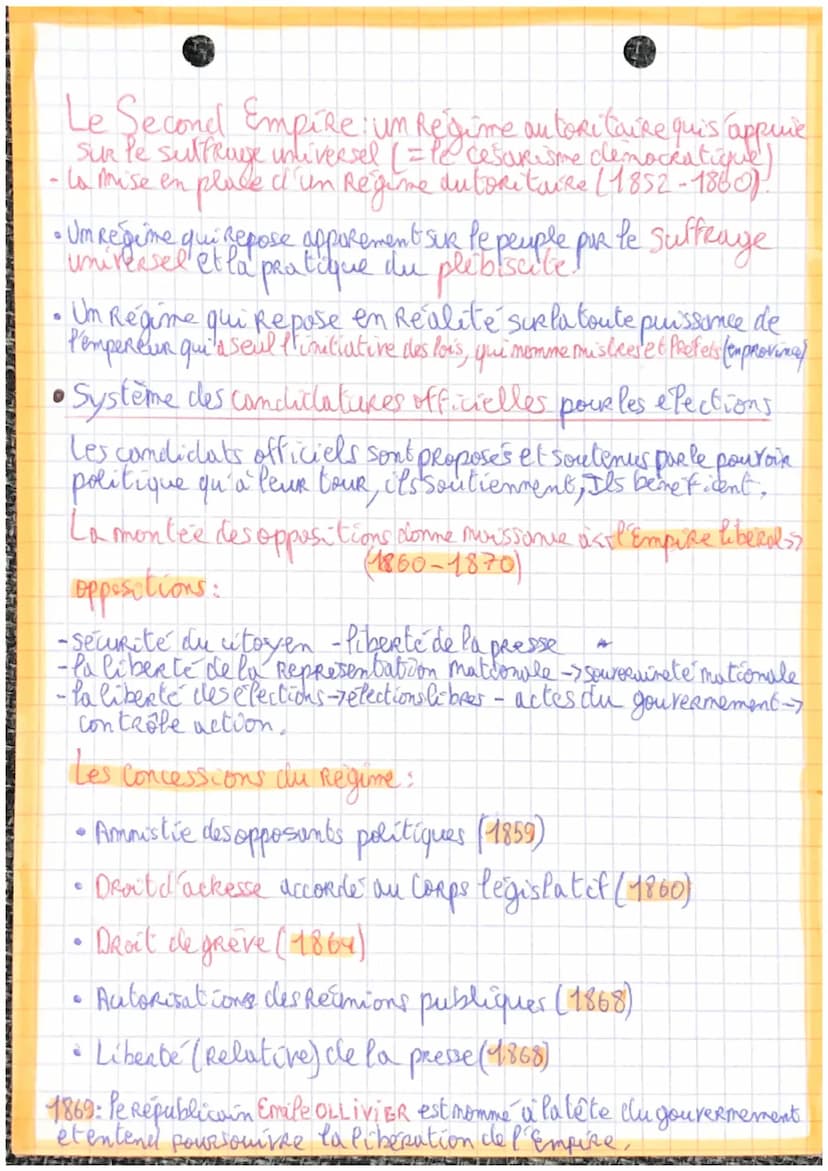 Le Second Empire : un Régime autoritaire qui s'appuie
sur le suffrage universel (= le césarisme démocratique)
- La mise en place d'un Régime autoritaire (1852 - 1860).
• Un régime qui repose apparement sur le peuple par le suffrage
universel et la pratique du plébiscite.
• Un Régime qui Repose en Réalité sur la toute puissance de
l'empereur qui a seul l'initiative des lois, qui nomme mistres et Préfets (en province)
• Système des candidatures officielles pour les élections
Les candidats officiels sont proposés et soutenus par le pouvoir
politique qu'à leur tour, ils soutiennent, Ils bénéficient.
La montée des oppositions donne naissance à <<l'Empire libéral>>
(1860-1870)
oppositions :
- sécurité du citoyen - liberté de la presse
- la liberté de la Représentation nationale -> souveraineté nationale
- la liberté des élections -> élections libres - actes du gouvernement ->
contrôle action.
Les Concessions du Régime :
• Amnistie des opposants politiques (1859)
• Droit d'adresse accordé au Corps législatif (1860)
• Droit de grève (1864)
• Autorisations des Réunions publiques (1868)
• Liberté (Relative) de la presse (1868)
1869 : le Républicain Emile OLLIVIER est nommé à la tête du gouvernement
et entend poursouivre la libération de l'Empire.